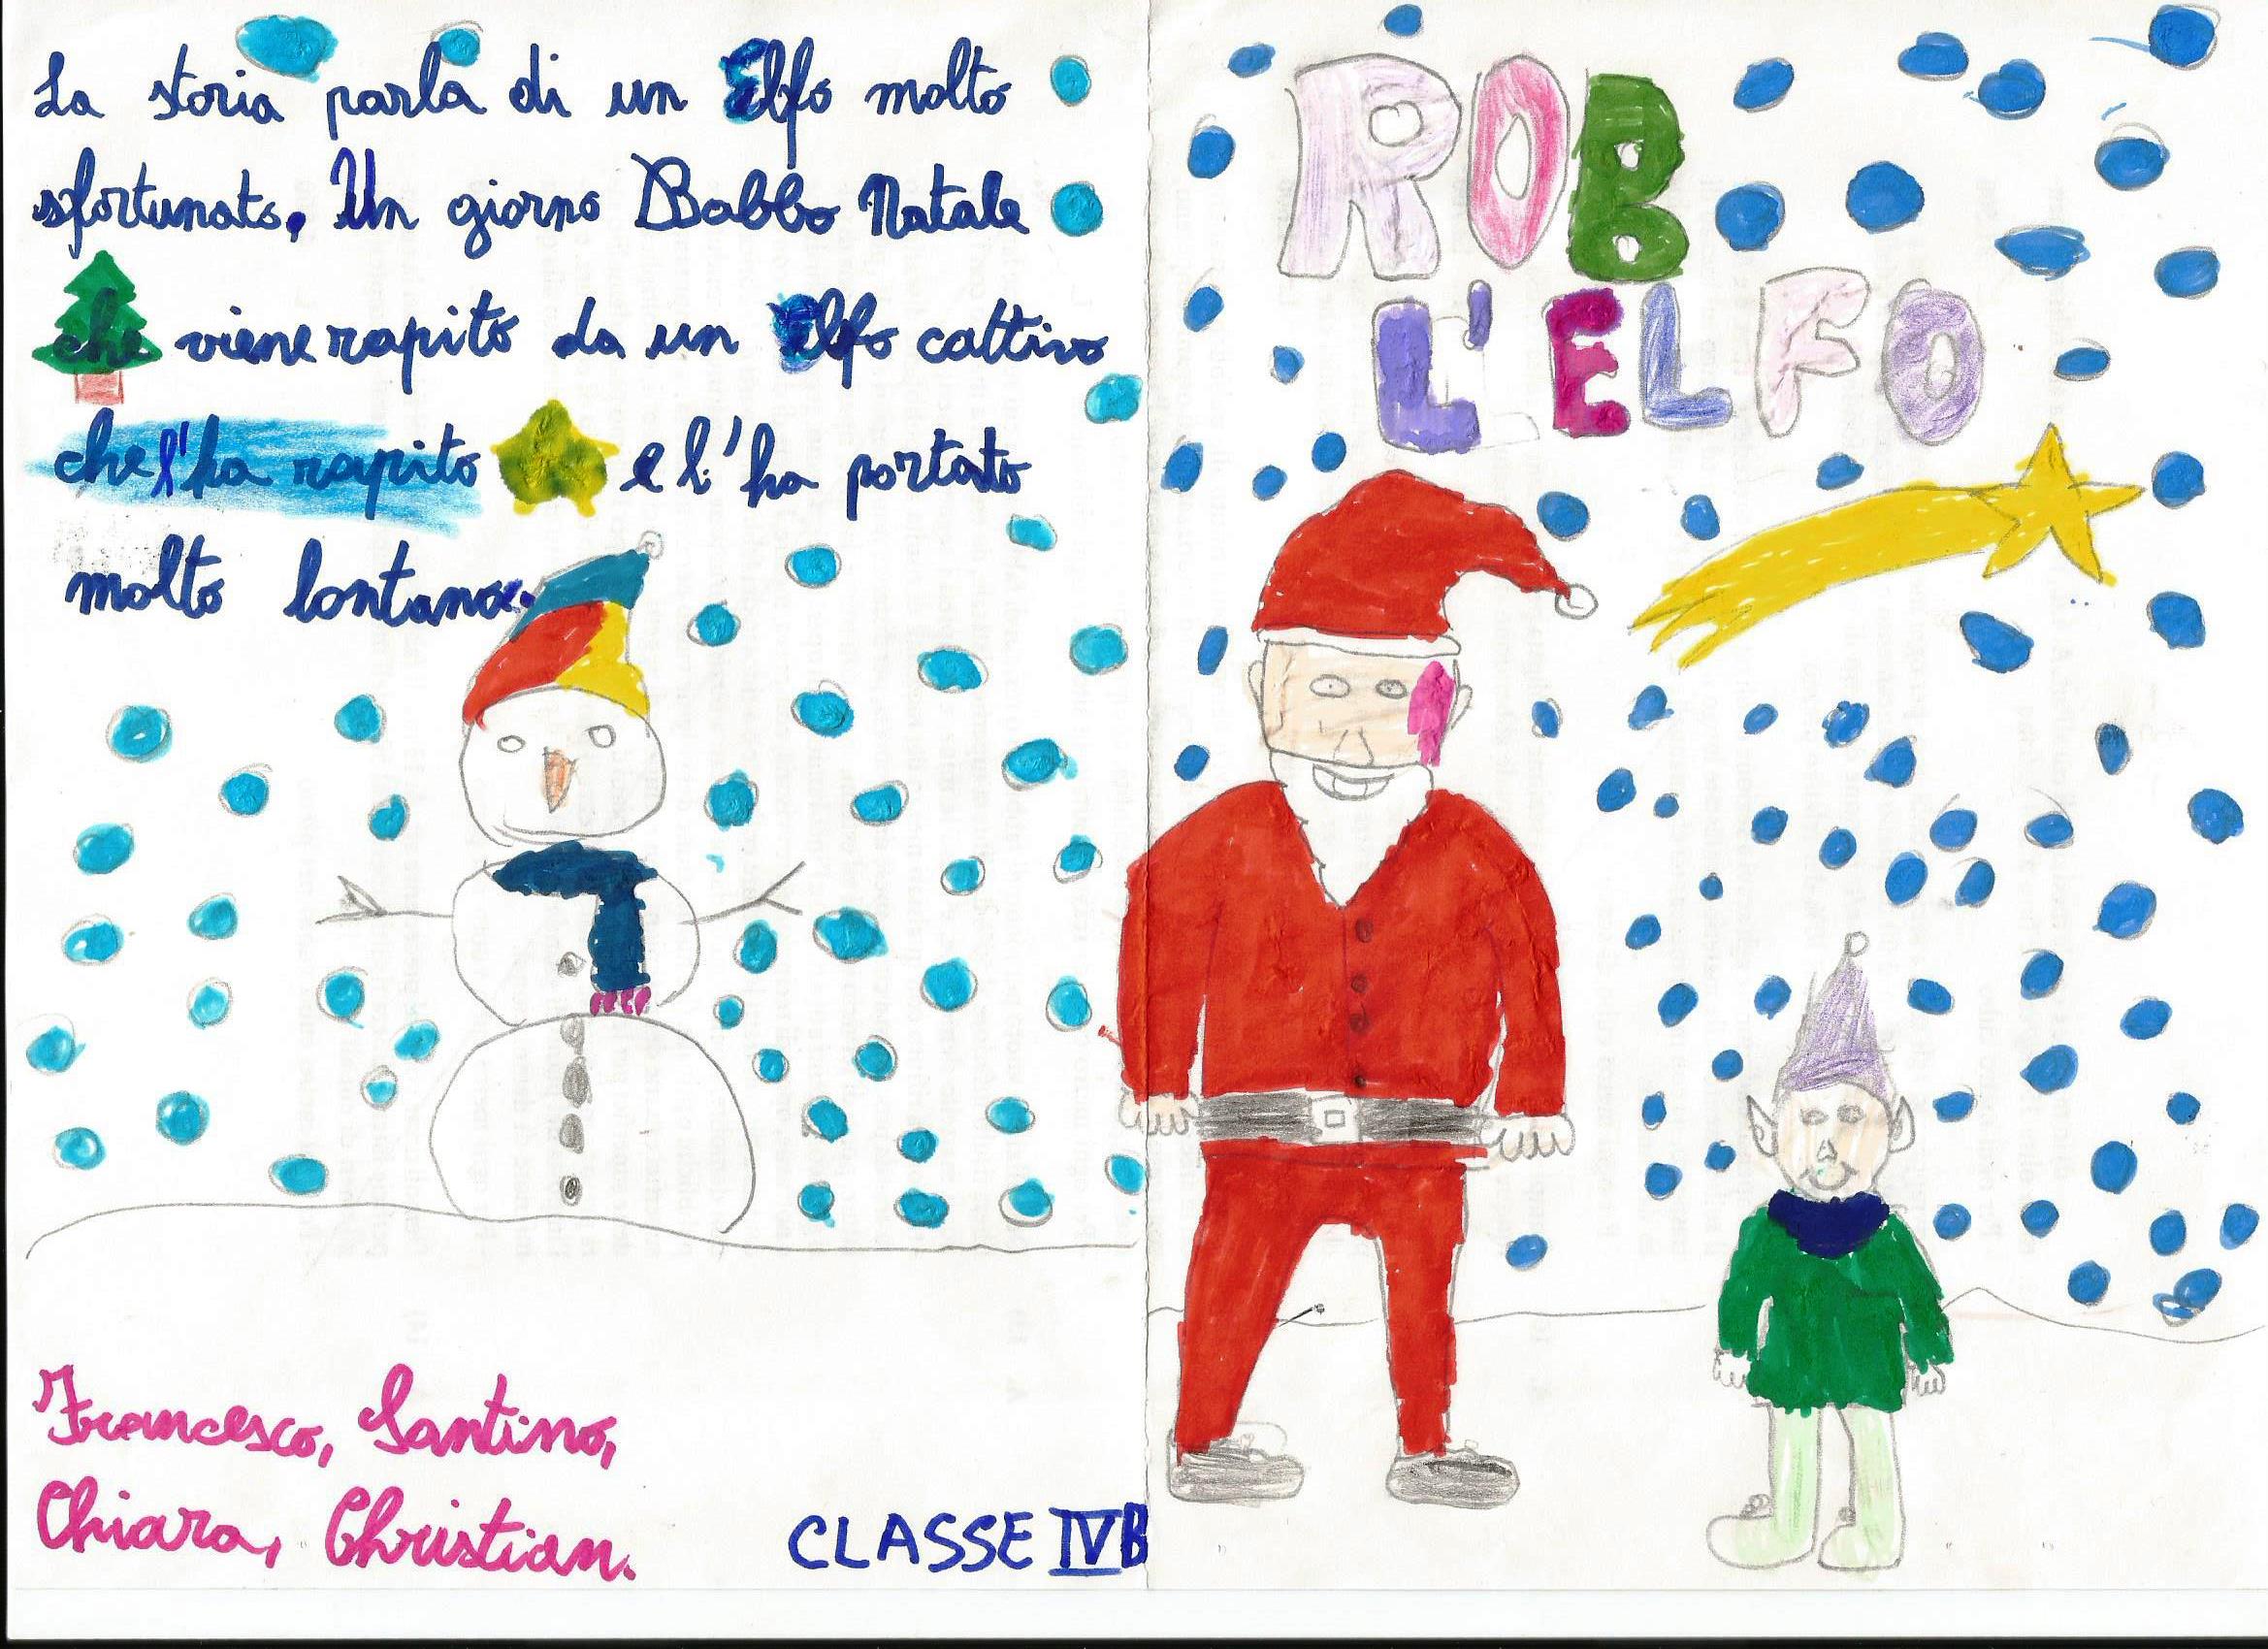 La storia parla di un Elfo molto
sfortunato. Un giorno Babbo Natale
che viene rapito da un Elfo cattivo
che l'ha rapito e l'ha portato
molto lontano.
Francesco, Santino,
Chiara, Christian.
CLASSE IVB
ROB
L'ELFO